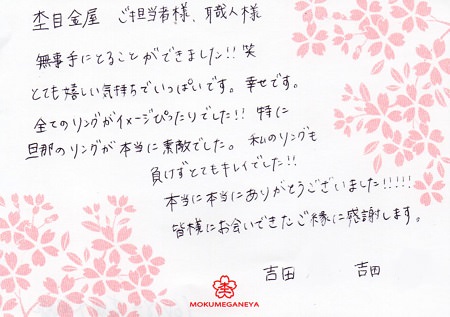 杢目金屋 ご担当者様、職人様
無事手にとることができました!! 笑
とても嬉しい気持ちでいっぱいです。幸せです。
全てのリングがイメージぴったりでした!! 特に
旦那のリングが本当に素敵でした。私のリングも
負けずとてもキレイでした!!
本当に本当にありがとうございました!!!!!
皆様にお会いできたご縁に感謝します。
吉田 吉田
MOKUMEGANEYA